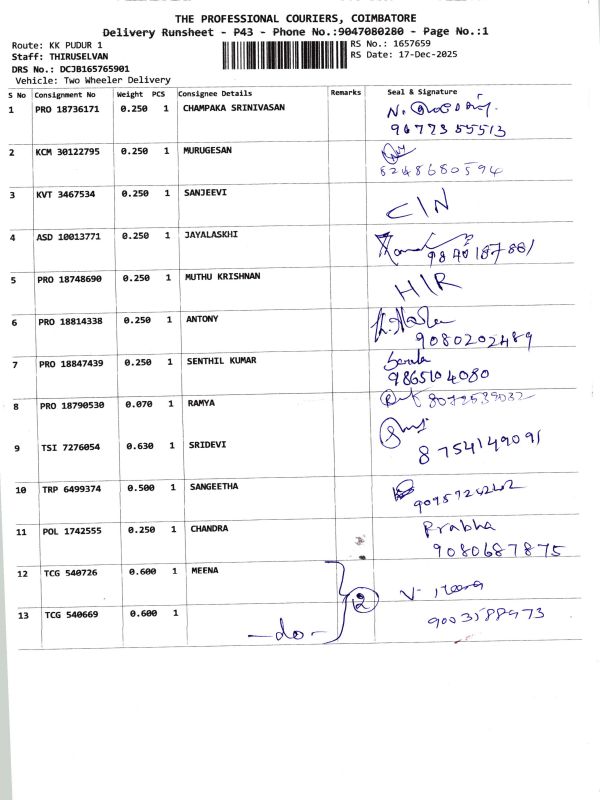 THE PROFESSIONAL COURIERS, COIMBATORE
Delivery Runsheet - P43 - Phone No.:9047080280 - Page No.:1
Route: KK PUDUR 1
RS No.: 1657659
Staff: THIRUSELVAN
RS Date: 17-Dec-2025
DRS No.: DCJB165765901
Vehicle: Two Wheeler Delivery
S No Consignment No Weight PCS Consignee Details Remarks Seal & Signature
1 PRO 18736171 0.250 1 CHAMPAKA SRINIVASAN
9677355513
2 KCM 30122795 0.250 1 MURUGESAN
8248680594
3 KVT 3467534 0.250 1 SANJEEVI C/N
4 ASD 10013771 0.250 1 JAYALASKHI
5 PRO 18748690 0.250 1 MUTHU KRISHNAN H/R
6 PRO 18814338 0.250 1 ANTONY
9080202489
7 PRO 18847439 0.250 1 SENTHIL KUMAR
9865104080
8 PRO 18790530 0.070 1 RAMYA
9 TSI 7276054 0.630 1 SRIDEVI
8754149091
10 TRP 6499374 0.500 1 SANGEETHA
11 POL 1742555 0.250 1 CHANDRA Prabha
9080687875
12 TCG 540726 0.600 1 MEENA
2
13 TCG 540669 0.600 1
-do-